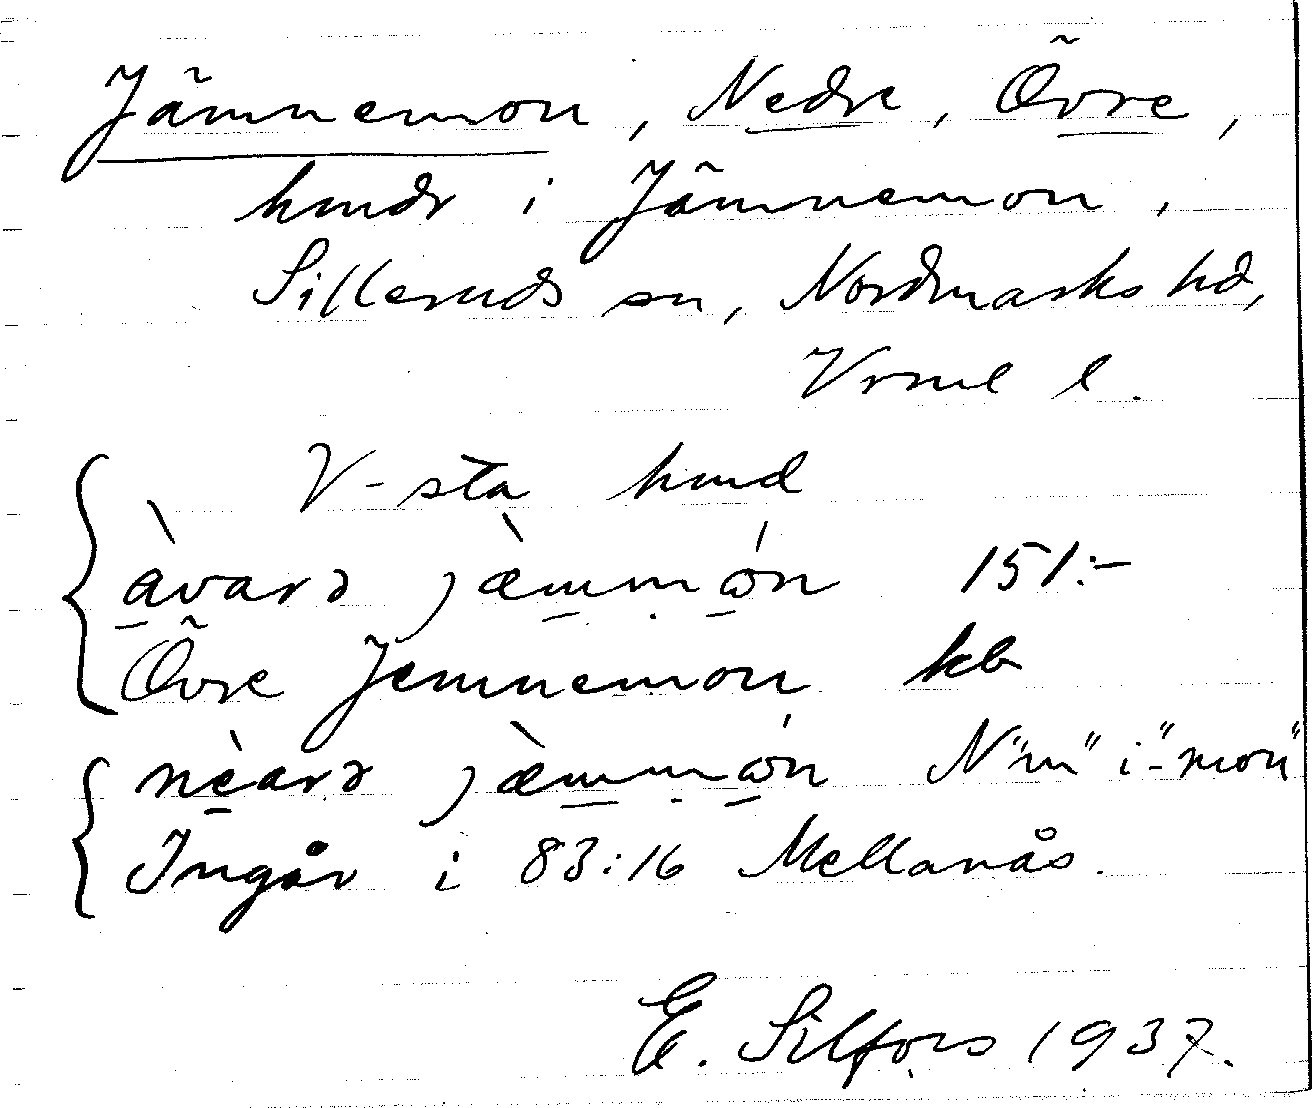 Jämnemon, Nedre, Övre,
hmdr i Jämnemon,
Silleruds sn, Nordmarks hd,
Vrml l.
V-sta hmd
àvarə jæ̀mmón 151:-
Övre Jemnemon kb
nèarə jæ̀mmón N "m" i "-mon"
Ingår i 83:16 Mellanås.
E. Silfors 1937.